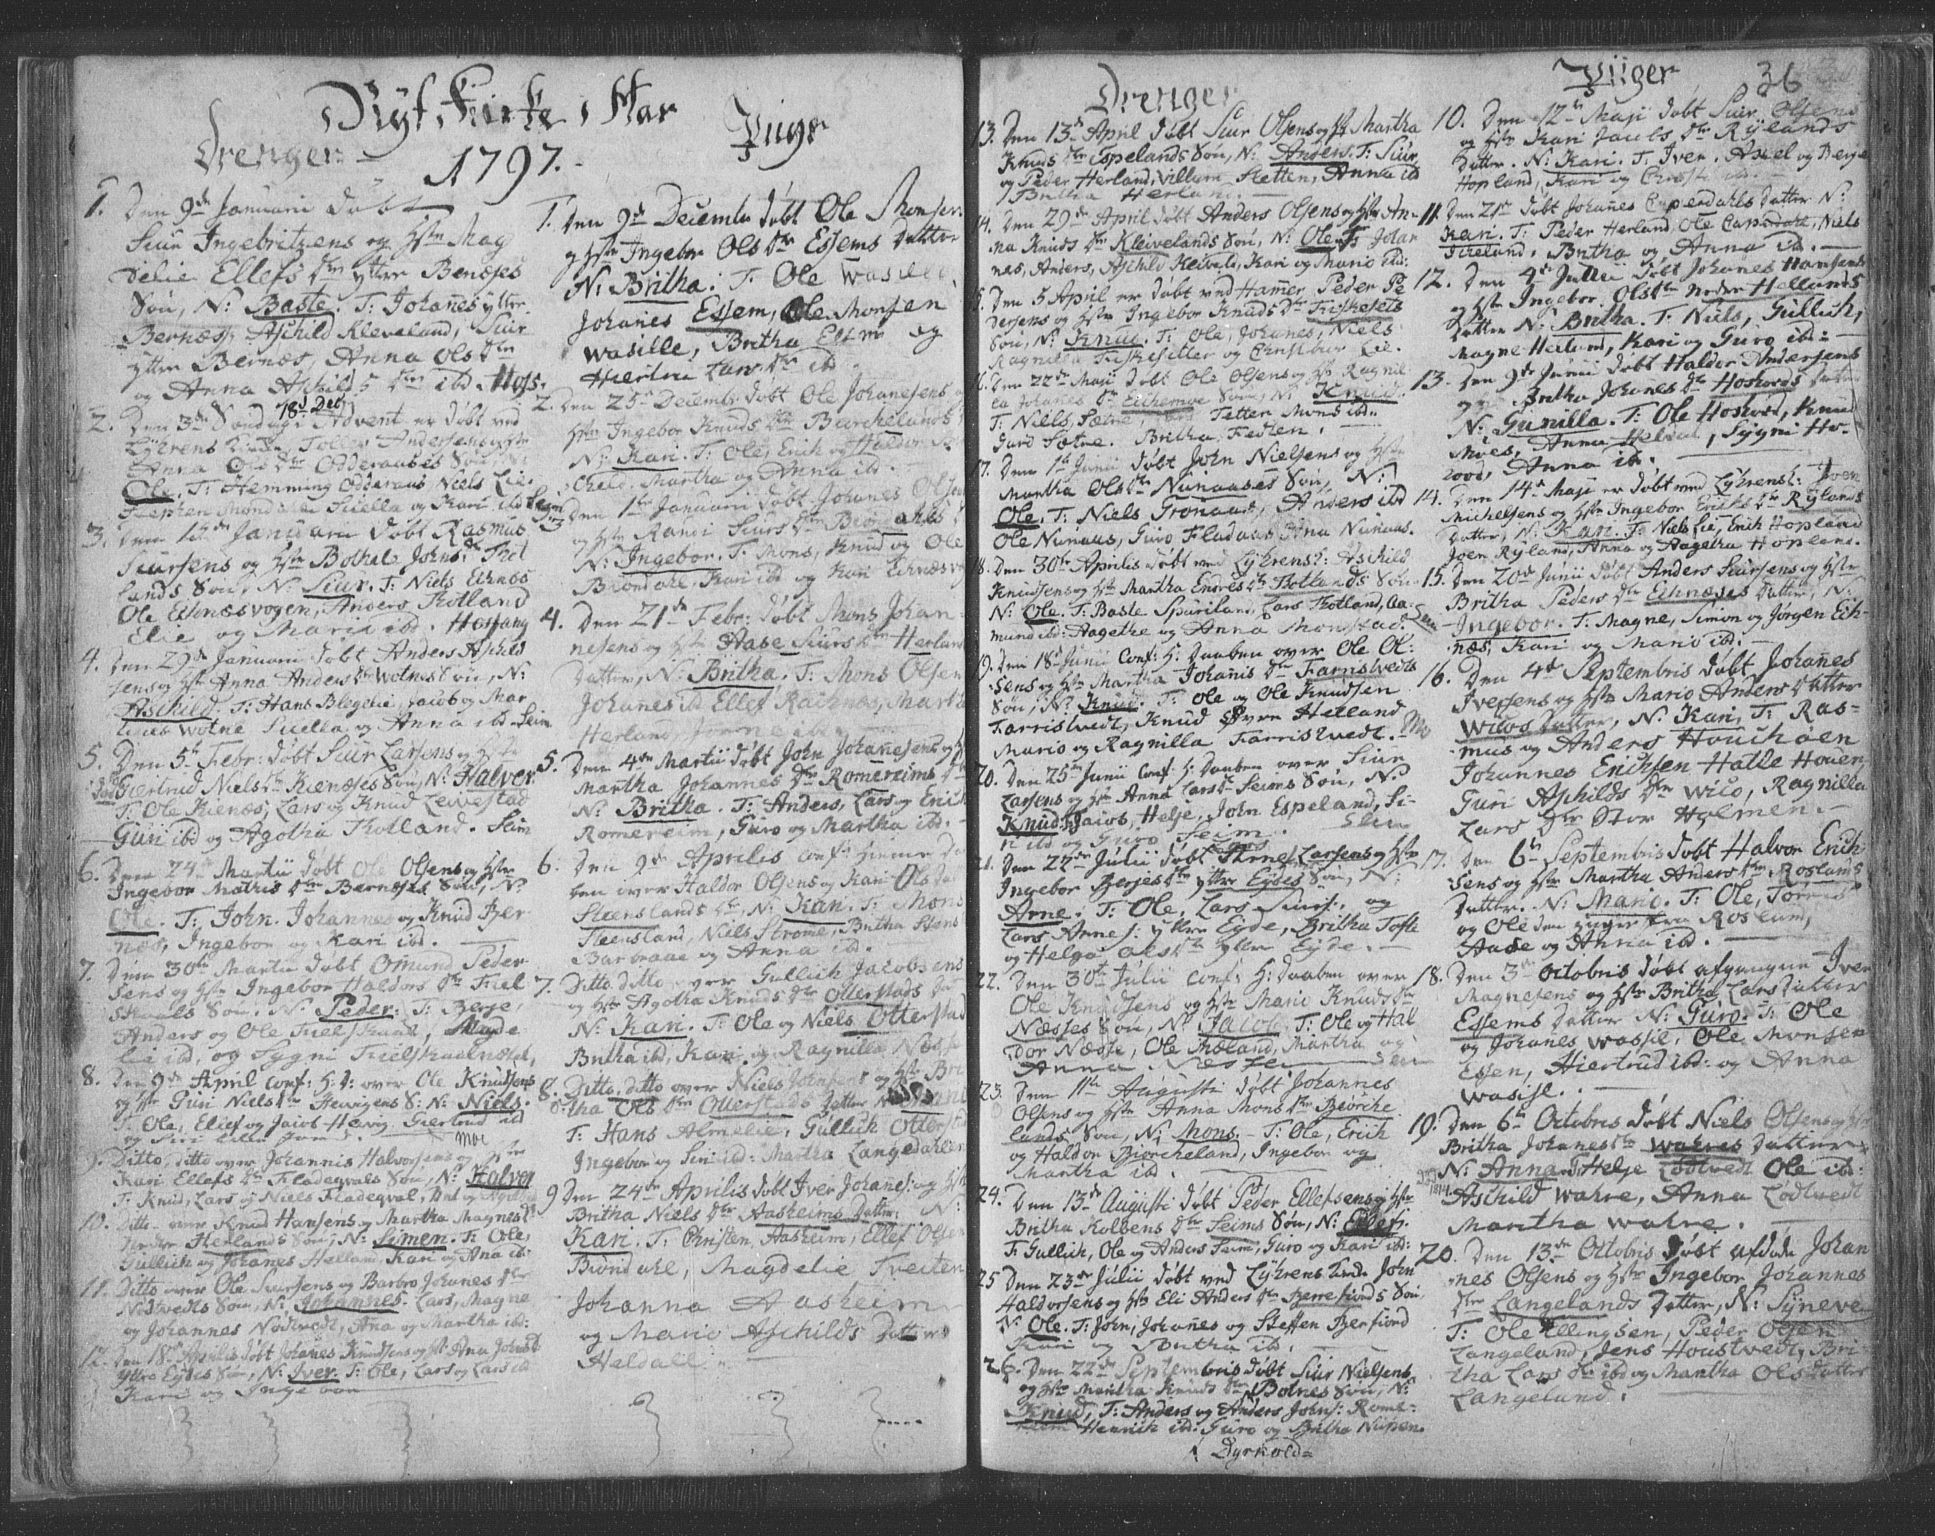 Nyt Kirke Aar
Drenger
1797.
1. Den 9de Januarii døbt
Siur Ingebritzens og Hstr Mag
delie Ellefs dtr yttre Bernæses
Søn, N: Baste. T: Johanes yttre
Bernæss, Aschild Kleveland, Siur
yttre Bernæs, Anna Ols dtr
og Anna Aschilds dtr ibd.
2. Den 3de Søndag i Advent er døbt ved
18 Dec
Lykrens Kirke Tollev Andersens og Hstr
Anna Ols dtr Odderaases Søn, N:
Ole. T: Hemming Odderaas Niels Lie
3. Den 1ste Januarii døbt Rasmus
Siursens og Hstr Bothel Johns dtr
lands Søn, N: Siur. T: Niels Echnæs
Ole Echnæsvogen, Anders Kotland
Elie og Mari ibd.
4. Den 29de Januarii døbt Anders Aschild
sens og Hstr Anna Anders dtr Wolnes Søn, N:
Aschild. T: Hans Blegelie, Jacob og Mar
Wolne Siella og Anna ibd.
5. Den 5te Febr: døbt Siur Larsens og Hstr
Giertrud Niels dtr Kienæses Søn, N: Halver
T: Ole Kienæs, Lars og Knud Lewestad
Guri ibd og Agotha Kotland.
6. Den 24de Martii døbt Ole Olsens og Hstr
Ingebor Mathis dtr Bernæses Søn, N:
Ole. T: John, Johannes og Knud Bjer
næs, Ingebor og Kari ibd.
7. Den 30te Martii døbt Omund Peder
sens og Hstr Ingebor Haldors dtr Fiel
skaals Søn, N: Peder. T: Berje,
Anders og Ole Fielskaal, Magde
lie ibd, og Sygni Fielskaalnæset,
8. Den 9de April conf: H: D: over Ole Knudsens
og Hstr Guri Niels dtr Hewigens S: N: Niels.
T: Ole, Ellef og Jacob Hevig, Giertrud ibd
9. Ditto, ditto over Johannis Halvorsens og Hstr
Kari Ellefs dtr Fladeqvals Søn, N: Halver
T: Knud, Lars og Niels Fladeqval,
10. Ditto over Knud Hansens og Martha Magnes
dtr Herlands Søn, N: Simen. T: Ole,
Gullich og Johanes Hellan, Kari og Ana ib:
11. Ditto over Ole Siursens og Barbro Johanes dtr
Nødtvedts Søn, N: Johannes. Lars, Magne
og Johannes Nødtvedt, Ana og Martha ibd:
12. Den 18de Aprilis døbt Johanes Knudsens og Hstr Ana Johns dtr
Yttre Eydes Søn, N: Iver. T: Ole, Lars og Lars ib
Kari og Ingebor
Piiger
1. Den 9de Decembr døbt Ole Monsens
og Hstr Ingebor Ols dtr Essems Datter
N: Britha: T: Ole Wasille,
Johanes Essem, Ole Monsen
Wasille, Britha Essem og
Hiertru Lars dtr ib
2. Den 25de Decembr døbt Ole Johanesens og
Hstr Ingebor Knuds dtr Biørchelands
N: Kari. T: Ole, Erich og Haldor Biør
cheld. Martha og Anna ib.
Den 1ste Januarii døbt Johanes Olsens
og Hstr Randi Siurs dtr Biøndahls
N: Ingebor. T: Mons, Knud og Ole
Biøndahl, Kari ibd og Kari Echnæsvog
4. Den 21de Febr: døbt Mons Johan
nesens og Hstr Aase Siurs dtr Herlands
Datter, N: Britha. T: Mons Olsen
Johanes Ellef Raknæs, Martha
Herland
5. Den 4de Martii døbt John Johanesens og Hstr
Martha Johannes dtr Romereims
N: Britha. T: Anders, Lars og Erich
Romereim, Guro og Martha ibd.
6. Den 9de Aprilis conf: hieme Daa
ben over Haldor Olsens og Kari Ols
Steenslands dtr, N: Kari. T: Mons
Steensland, Niels Strome, Britha Stens
Barbraae og Anna ibd.
7. Ditto, ditto over Gullich Jacobsens
og Hstr Agotha Knuds dtr Otterstads
N: Kari. T: Ole og Niels Otterstad
Britha ibd, Kari og Ragnilla Næsse
8. Ditto, ditto over Niels Johnsens og Hstr Bri
tha Ols dtr Otterstads Datter N:
T: Hans Almelie, Gullich Otterstad
Ingebor og Siri ibd: Martha Langedahlen
9 Den 24de Aprilis døbt Iver Johanes: og Hstr
Britha Niels dtr Aasheims Datter: N:
Kari. T: Christen Aasheim, Ellef Olsen
Biøndahl, Magdelie Tveiten
Johanna Aasheim
og Mario Aschilds Datter
Heldall
Drenger
13. Den 13de April døbt Siur Olsens og Hstr Martha
Knuds dtr Espelands Søn, N: Anders. T: Siur
og Peder Herland, Villum Sletten, Anna ib
Britha Herland.
14. Den 29de April døbt Anders Olsens og Hstr An
na Knuds dtr Kleivelands Søn, N: Ole. T: Johan
nes, Anders, Aschild Kleiveld, Kari og Mario ibd:
Den 5 April er døbt ved Hamer Peder Pe
dersens og Hstr Ingebor Knuds dtr Fiskesets
Søn, N: Knud. T: Ole, Johanes, Niels
Ragnilla Fiskesetter og Christbor Lie.
Den 22de Maji døbt Ole Olsens og Hstr Ragnil
la Johanes dtr Eichemoe Søn, N: Knud.
T: Niels, Sætre, Tetter, Mons ibd:
Guro Sætre. Britha, Fedjen.
17. Den 1ste Junii døbt John Nielsens og Hstr
Martha Ols dtr Nunaases Søn, N:
Ole. T: Niels Gronaas, Anders ibd
Ole Nunaas, Guro Fladaas Ana Nunaas.
18. Den 30te Aprilis døbt ved Lykrens: Aschild
Knudsens og Hstr Martha Endres dtr Kotlands Søn
N: Ole. T: Baste Spurilan, Lars Kotland, Aa-
mund ibd: Aagethe og Anna Monstad.
19. Den 18de Junii Conf: H: Daaben over Ole Ol-
sens og Hstr Martha Johanis dtr Farristvedts
Søn, N: Knud. T: Ole og Ole Knudsen
Farristvedt, Knud Øvre Helland
Mario og Ragnilla Farristvedt.
20. Den 25de Junii conf: H: Daaben over Siur
Larsens og Hstr Anna Lars dtr Seims Søn, N:
Knud. T: Jacob, Helje, John Espeland, Si-
ri ibd og Guro Seim.
21. Den 22de Julii døbt Arne Larsens og Hstr
Ingebor Berjes dtr yttre Eydes Søn, N:
Arne. T: Ole, Lars Siurs: og
Lars Arnes: yttre Eyde, Britha Tofte
og Helga Ols dtr yttre Eyde.
22. Den 30te Julii conf: H: Daaben over
Ole Knudsens og Hstr Mario Knuds dtr
Næsses Søn, N: Jacob. T: Ole og Hal
dor Næsse, Ole Mæland, Martha og
Anna Næsse
23. Den 11te Augusti døbt Johannes
Olsens og Hstr Anna Mons dtr Bjørche
lands Søn, N: Mons. T: Ole, Erich
og Haldor Biørcheland, Ingebor og
Martha ib.
24. Den 13de Augusti døbt Peder Ellefsens og Hstr
Britha Kolbens dtr Seims Søn, N: Ellef.
T: Gullich, Ole og Anders Seim, Guro og Kari ibd:
25 Den 23de Julii døbt ved Lykrens Kirke John
Haldorsens og Hstr Eli Anders dtr Bierrefiords Søn,
N: Ole. T: John, Johanes og Steffen Bierfiord
Kari og Britha ib.
26. Den 22de Septembris døbt Siur Nielsens
og Hstr Martha Knuds dtr Botnes Søn, N:
Knud, T: Anders og Anders Johns: Rome-
reim Henrich ibd: Guro og Britha
Dyrkold
Piiger
36
10. Den 12te Maji døbt Siur Olsens
og Hstr Kari Jacobs dtr Rylands
Datter. N: Kari. T: Iver, Axel og Berje
Hopland, Kari og Christi ibd.
11. Den 21de døbt Johanes Cupendahls Datter N:
Kari. T: Peder Herland, Ole Cupendahl, Niels
Fieeland, Britha og Anna ib.
12. Den 4de Julii døbt Johanes Hansens
og Hstr Ingebor Ols dtr Nedre Hellands
Datter N: Britha. T: Niels, Gullich,
Magne Helland, Kari og Guro ibd:
13. Den 9de Junii døbt Haldor Andersens
og Hstr Britha Johanes dtr Hoskods Datter
N: Gunilla. T: Ole Hoskod, Knud
Moes, Anna, Sygni Ho-
Anna ib.
14. Den 14de Maji er døbt ved Lykrens: Joen
Michelsens og Hstr Ingebor Erichs dtr Rylands
Datter, N: Kari. T: Niels Lie, Erich Hopland
Joen Ryland, Anna og Aagetha Hopland.
15. Den 20de Junii døbt Anders Siursens og Hstr
Britha Peders dtr Echnæses Datter, N:
Ingebor. T: Magne, Simon og Jørgen Ech
næs, Kari og Mario ibd.
16. Den 4de Septembris døbt Johanes
Iversens og Hstr Mario Anders Datter
Wiigs Datter, N: Kari. T: Ras-
mus og Anders Houchøen
Johannes Erichsen Halle Houen,
Guri Aschilds dtr Wiig, Ragnilla
Lars dtr Stor Holmen.
17. Den 6te Septembris døbt Halvor Erich
sens og Hstr Martha Anders dtr Roslands
Datter. N: Mario. T: Ole, Torris
og Ole den yngre fra Rosland,
Aase og Anna ibd.
18. Den 3de Octobris døbt afgangne Iver
Magnesens og Hstr Britha Lars Datter
Essems Datter N: Guro. T: Ole
og Johanes Wassil, Ole Monsen
Essen, Hiertrud ibd: og Anna
Wasisl.
19. Den 6te Octobris døbt Niels Olsens og Hstr
Britha Johanes dtr Wahres Datter
N: Anna. T: Helje Lødtvedt Ole ib:
1814
Aschild Wahre, Anna Lødtvedt
Martha Wahre.
20. Den 13de Octobris døbt afdøde Johan
nes Olsens og Hstr Ingebor Johannes
dtr Langelands Datter, N: Syneve
T: Ole Ellingsen, Peder Olsen
Langeland, Jens Houstvedt, Bri-
tha Lars dtr ibd og Martha Ols Datter
Langeland.